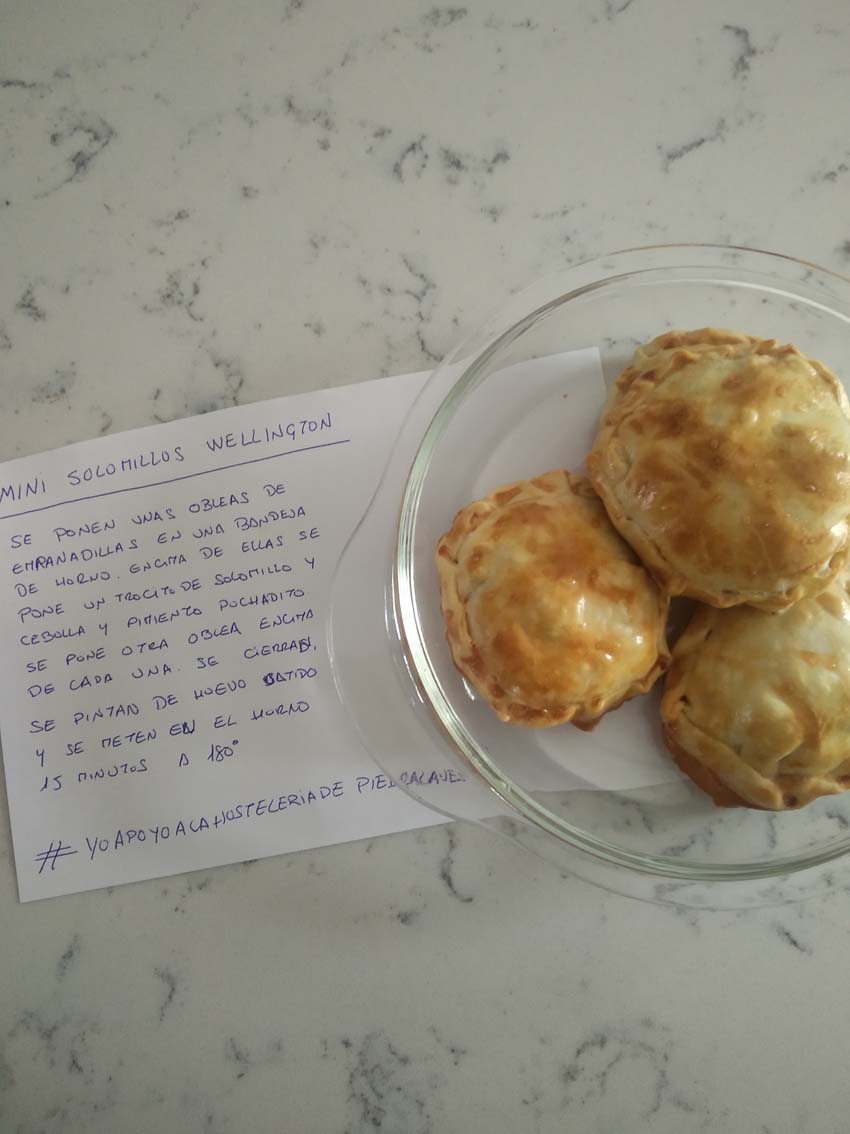 MINI SOLOMILLOS WELLINGTON
SE PONEN UNAS OBLEAS DE
EMPANADILLAS EN UNA BANDEJA
DE HORNO. ENCIMA DE ELLAS SE
PONE UN TROCITO DE SOLOMILLO Y
CEBOLLA Y PIMIENTO POCHADITO
SE PONE OTRA OBLEA ENCIMA
DE CADA UNA. SE CIERRAN,
SE PINTAN DE HUEVO BATIDO
Y SE METEN EN EL HORNO
15 MINUTOS A 180°
# YOAPOYOALAHOSTELERIADE PIEDRALAVES